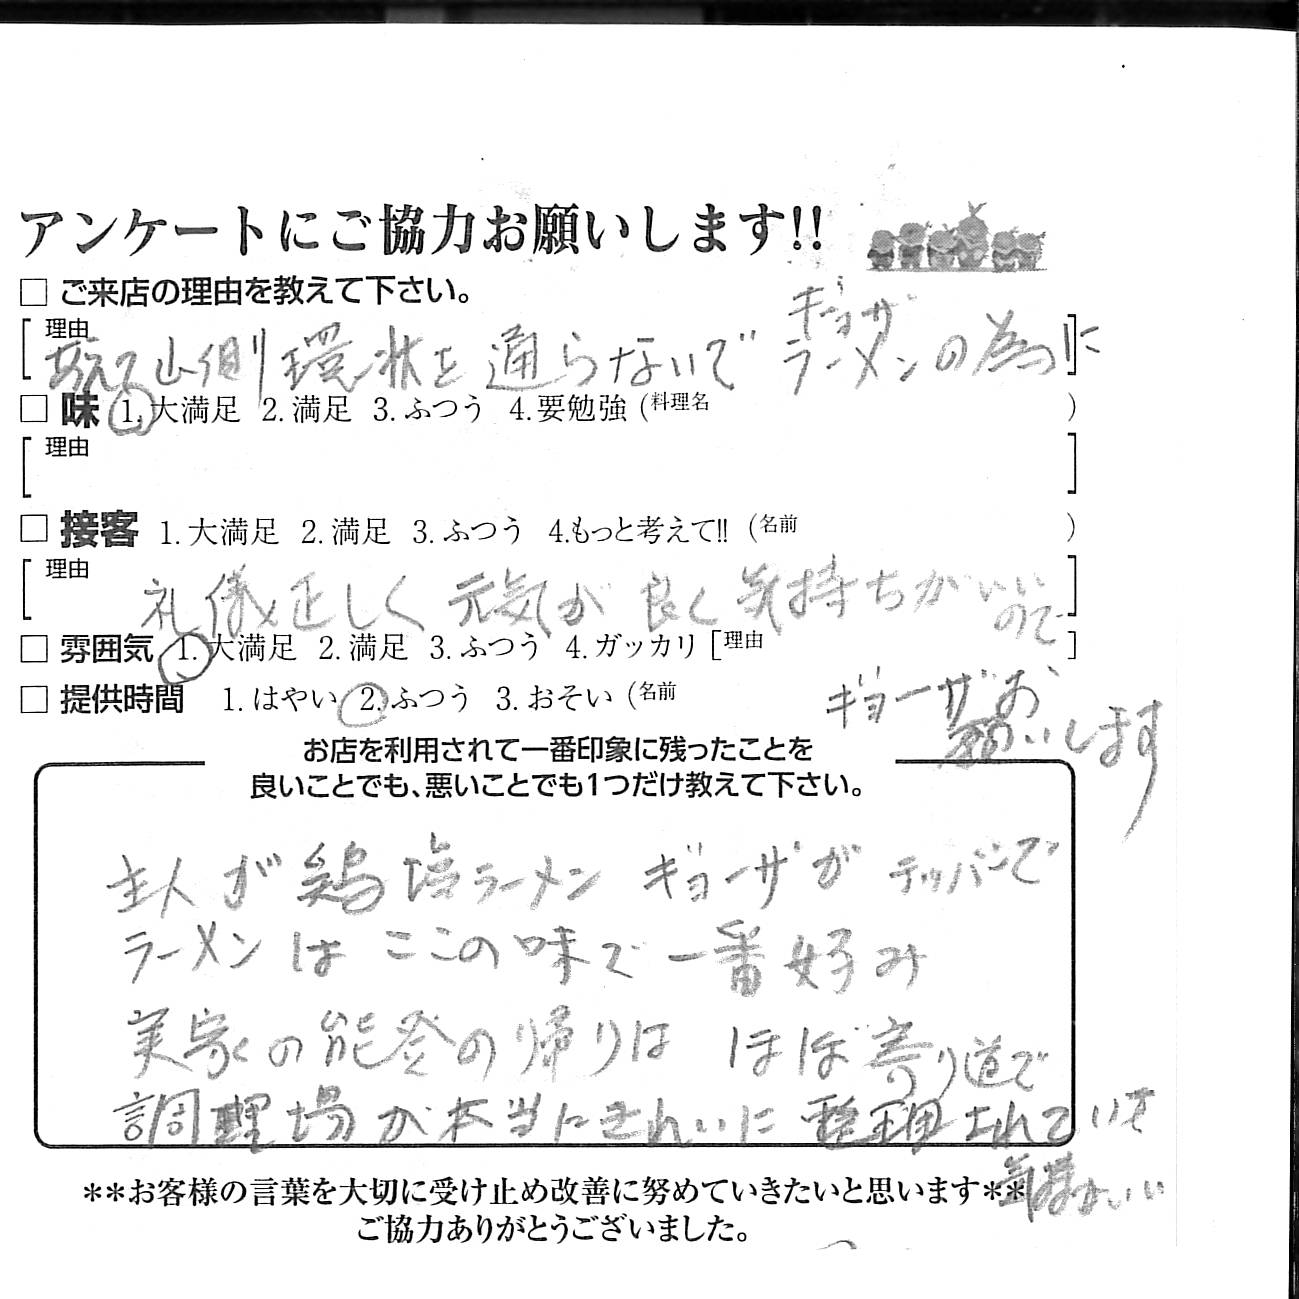 アンケートにご協力お願いします!!
□ ご来店の理由を教えて下さい。
ギョーザ
[理由 敢えて山側環状を通らないで ラーメンの為に]
□ 味 1. 大満足 2. 満足 3. ふつう 4. 要勉強 (料理名 )
[理由 ]
□ 接客 1. 大満足 2. 満足 3. ふつう 4.もっと考えて!! (名前 )
[理由 礼儀正しく 元気が良く 気持ちがいい
ので]
□ 雰囲気 1. 大満足 2. 満足 3. ふつう 4. ガッカリ [理由 ]
□ 提供時間 1. はやい 2. ふつう 3. おそい (名前
ギョーザお
願いします
お店を利用されて一番印象に残ったことを
良いことでも、悪いことでも1つだけ教えて下さい。
主人が鶏塩ラーメン ギョーザが テッパンで
ラーメンは ここの味で 一番好み
実家の能登の帰りは ほぼ寄り道で
調理場が本当にきれいに 整理されていて
気持がいい
**お客様の言葉を大切に受け止め改善に努めていきたいと思います**
ご協力ありがとうございました。